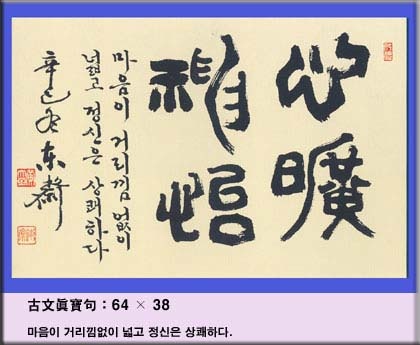 心曠
神怡
마음이 거리낌 없이
넓고 정신은 상쾌하다
辛巳冬
古文眞寶句 : 64 × 38
마음이 거리낌없이 넓고 정신은 상쾌하다.